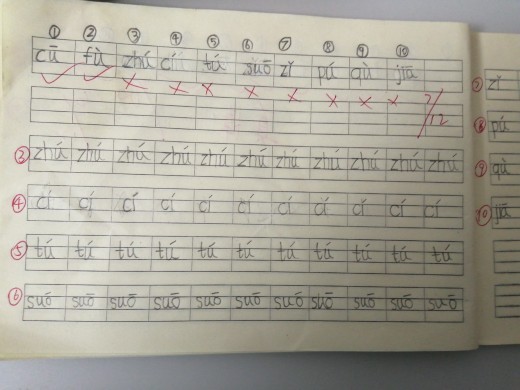 ① ② ③ ④ ⑤ ⑥ ⑦ ⑧ ⑨ ⑩
cū fù zhú cí tú suō zǐ pú qù jiā
2/12
③ zhú zhú zhú zhú zhú zhú zhú zhú zhú zhú zhú
④ cí cí cí cí cí cí cí cí cí cí cí
⑤ tú tú tú tú tú tú tú tú tú tú tú
⑥ suō suō suō suō suō suō suō suō suō suō suō
⑦ zǐ
⑧ pú
⑨ qù
⑩ jiā